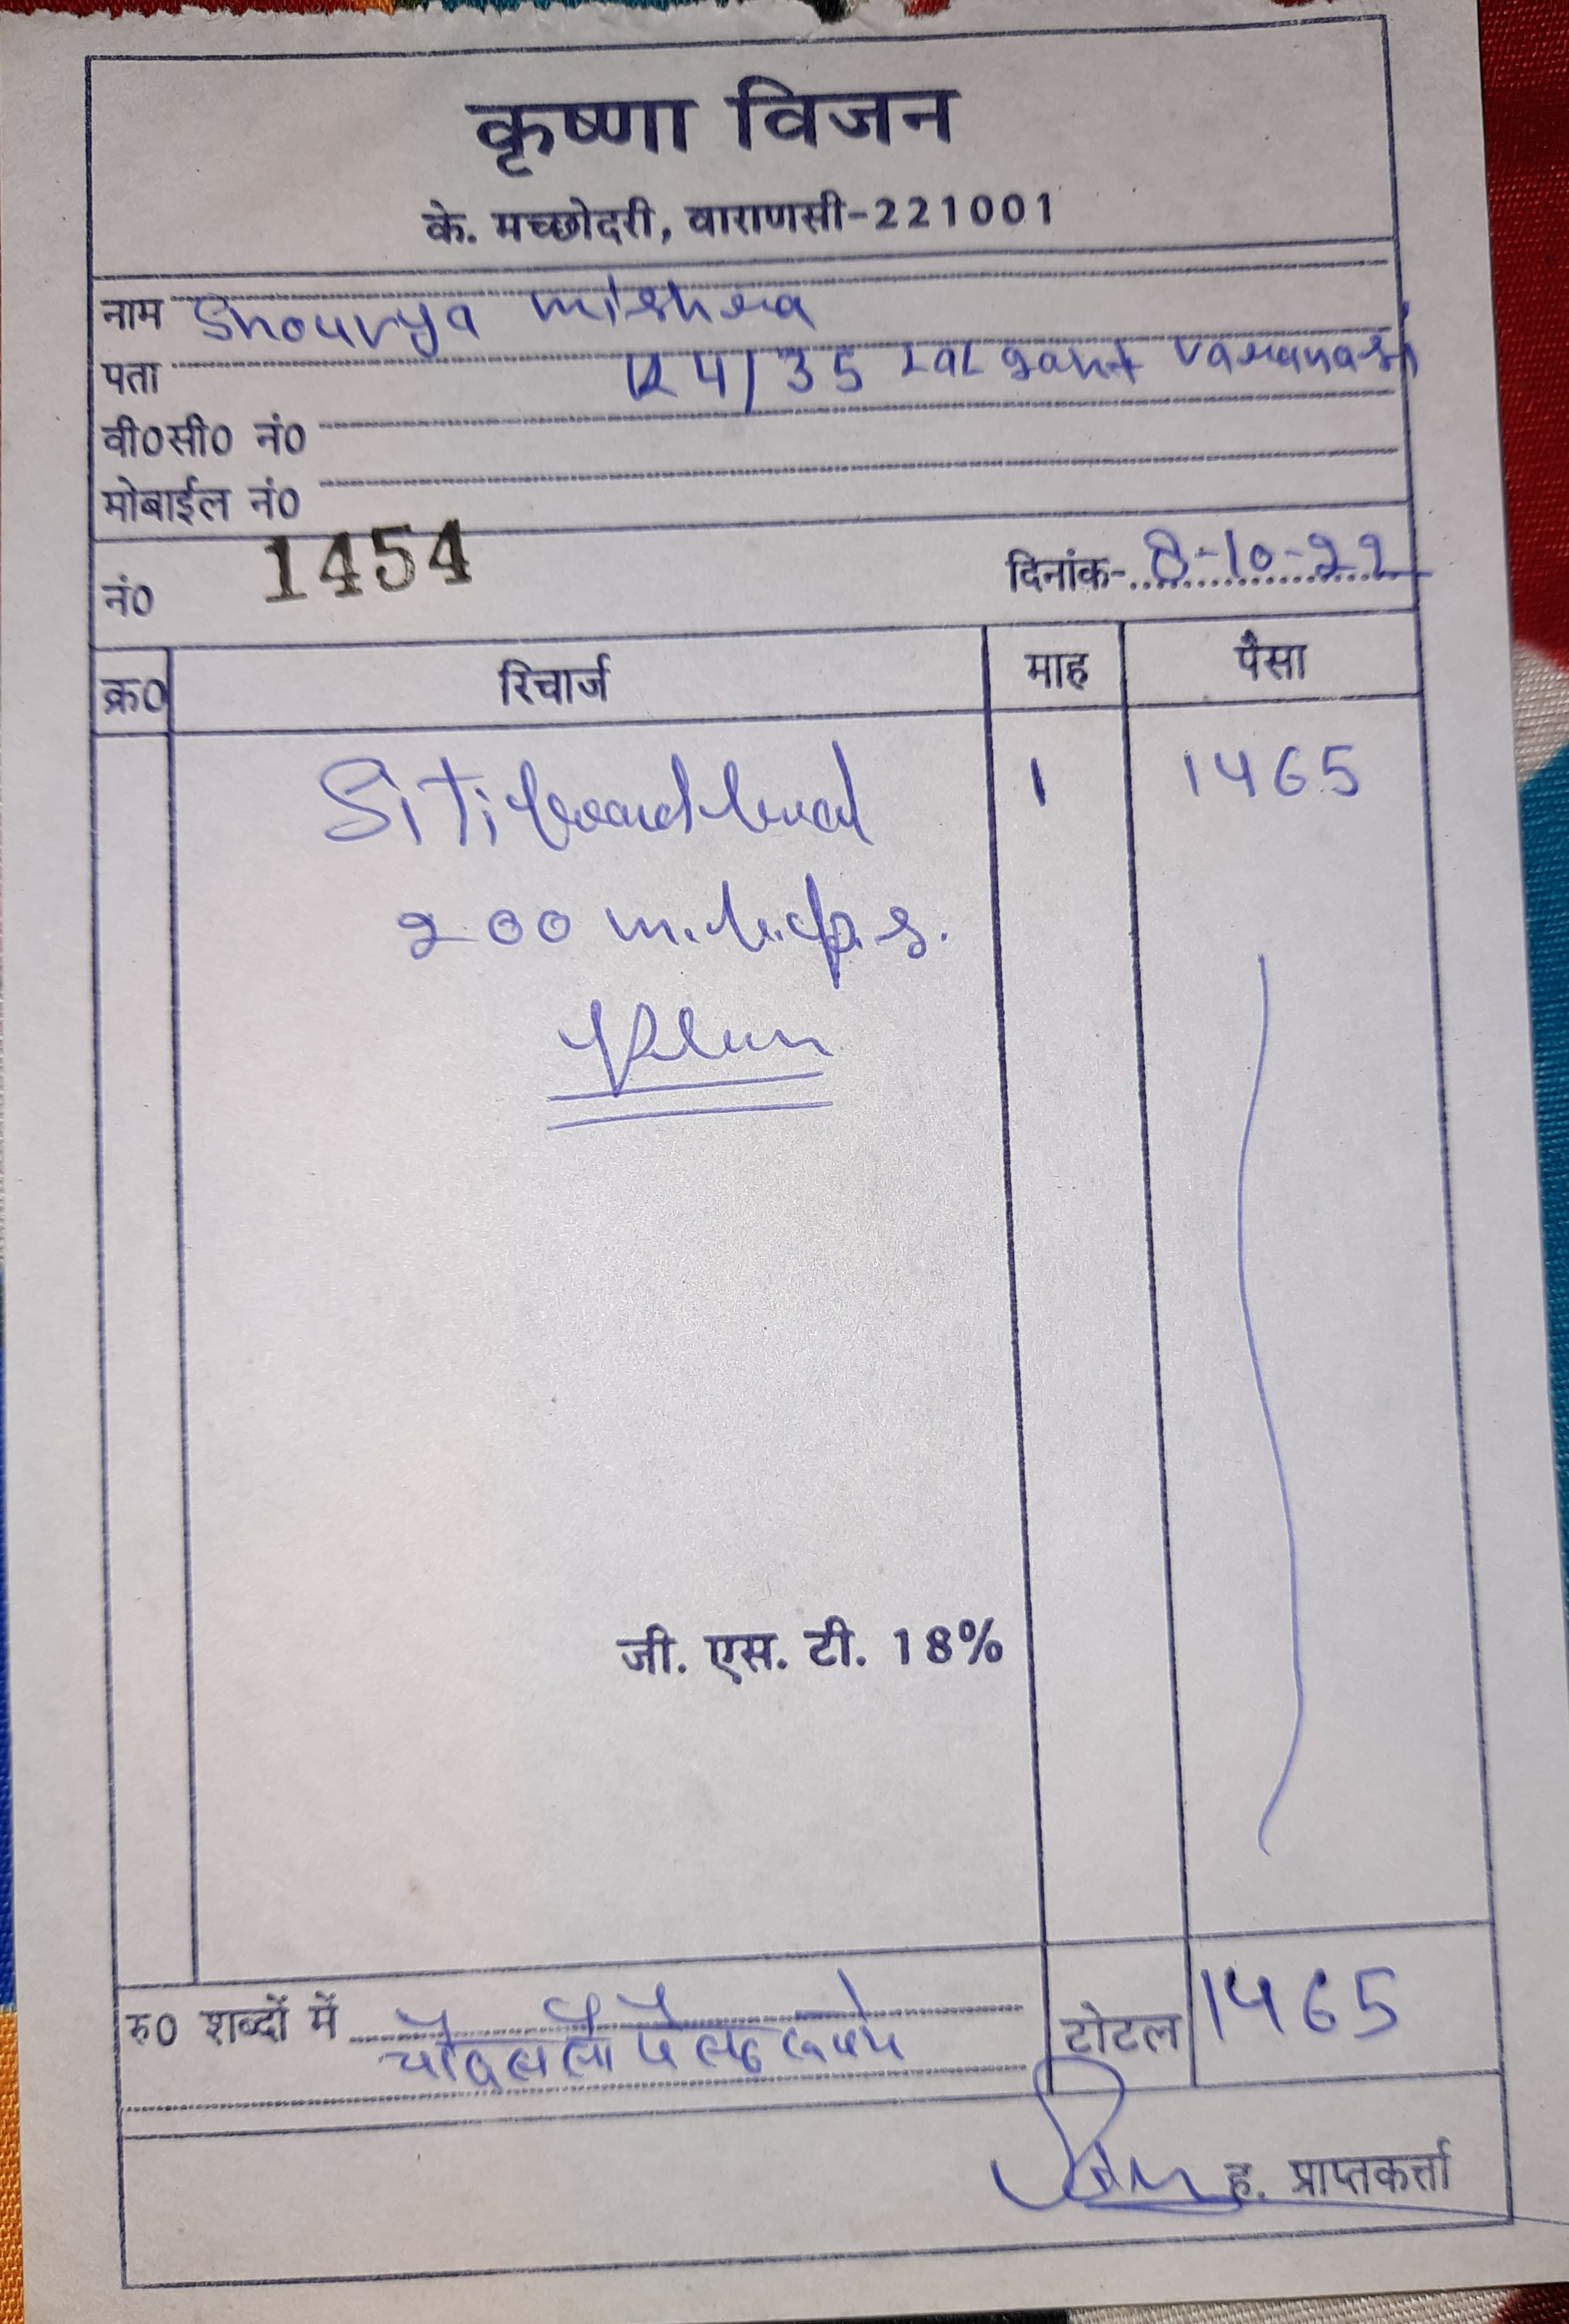 कृष्णा विजन
के. मच्छोदरी, वाराणसी-221001
नाम Shourya mishra
पता K 4/35 Lal gaht varanasi
वी0सी0 नं0
मोबाईल नं0
नं0 1454 दिनांक- 8-10-22
क्र0 रिचार्ज माह पैसा
Siti broadband 1 1465
200 m.b.p.s.
Plan
जी. एस. टी. 18%
रु0 शब्दों में चौदह सौ पैसठ रूपये टोटल 1465
ह. प्राप्तकर्त्ता